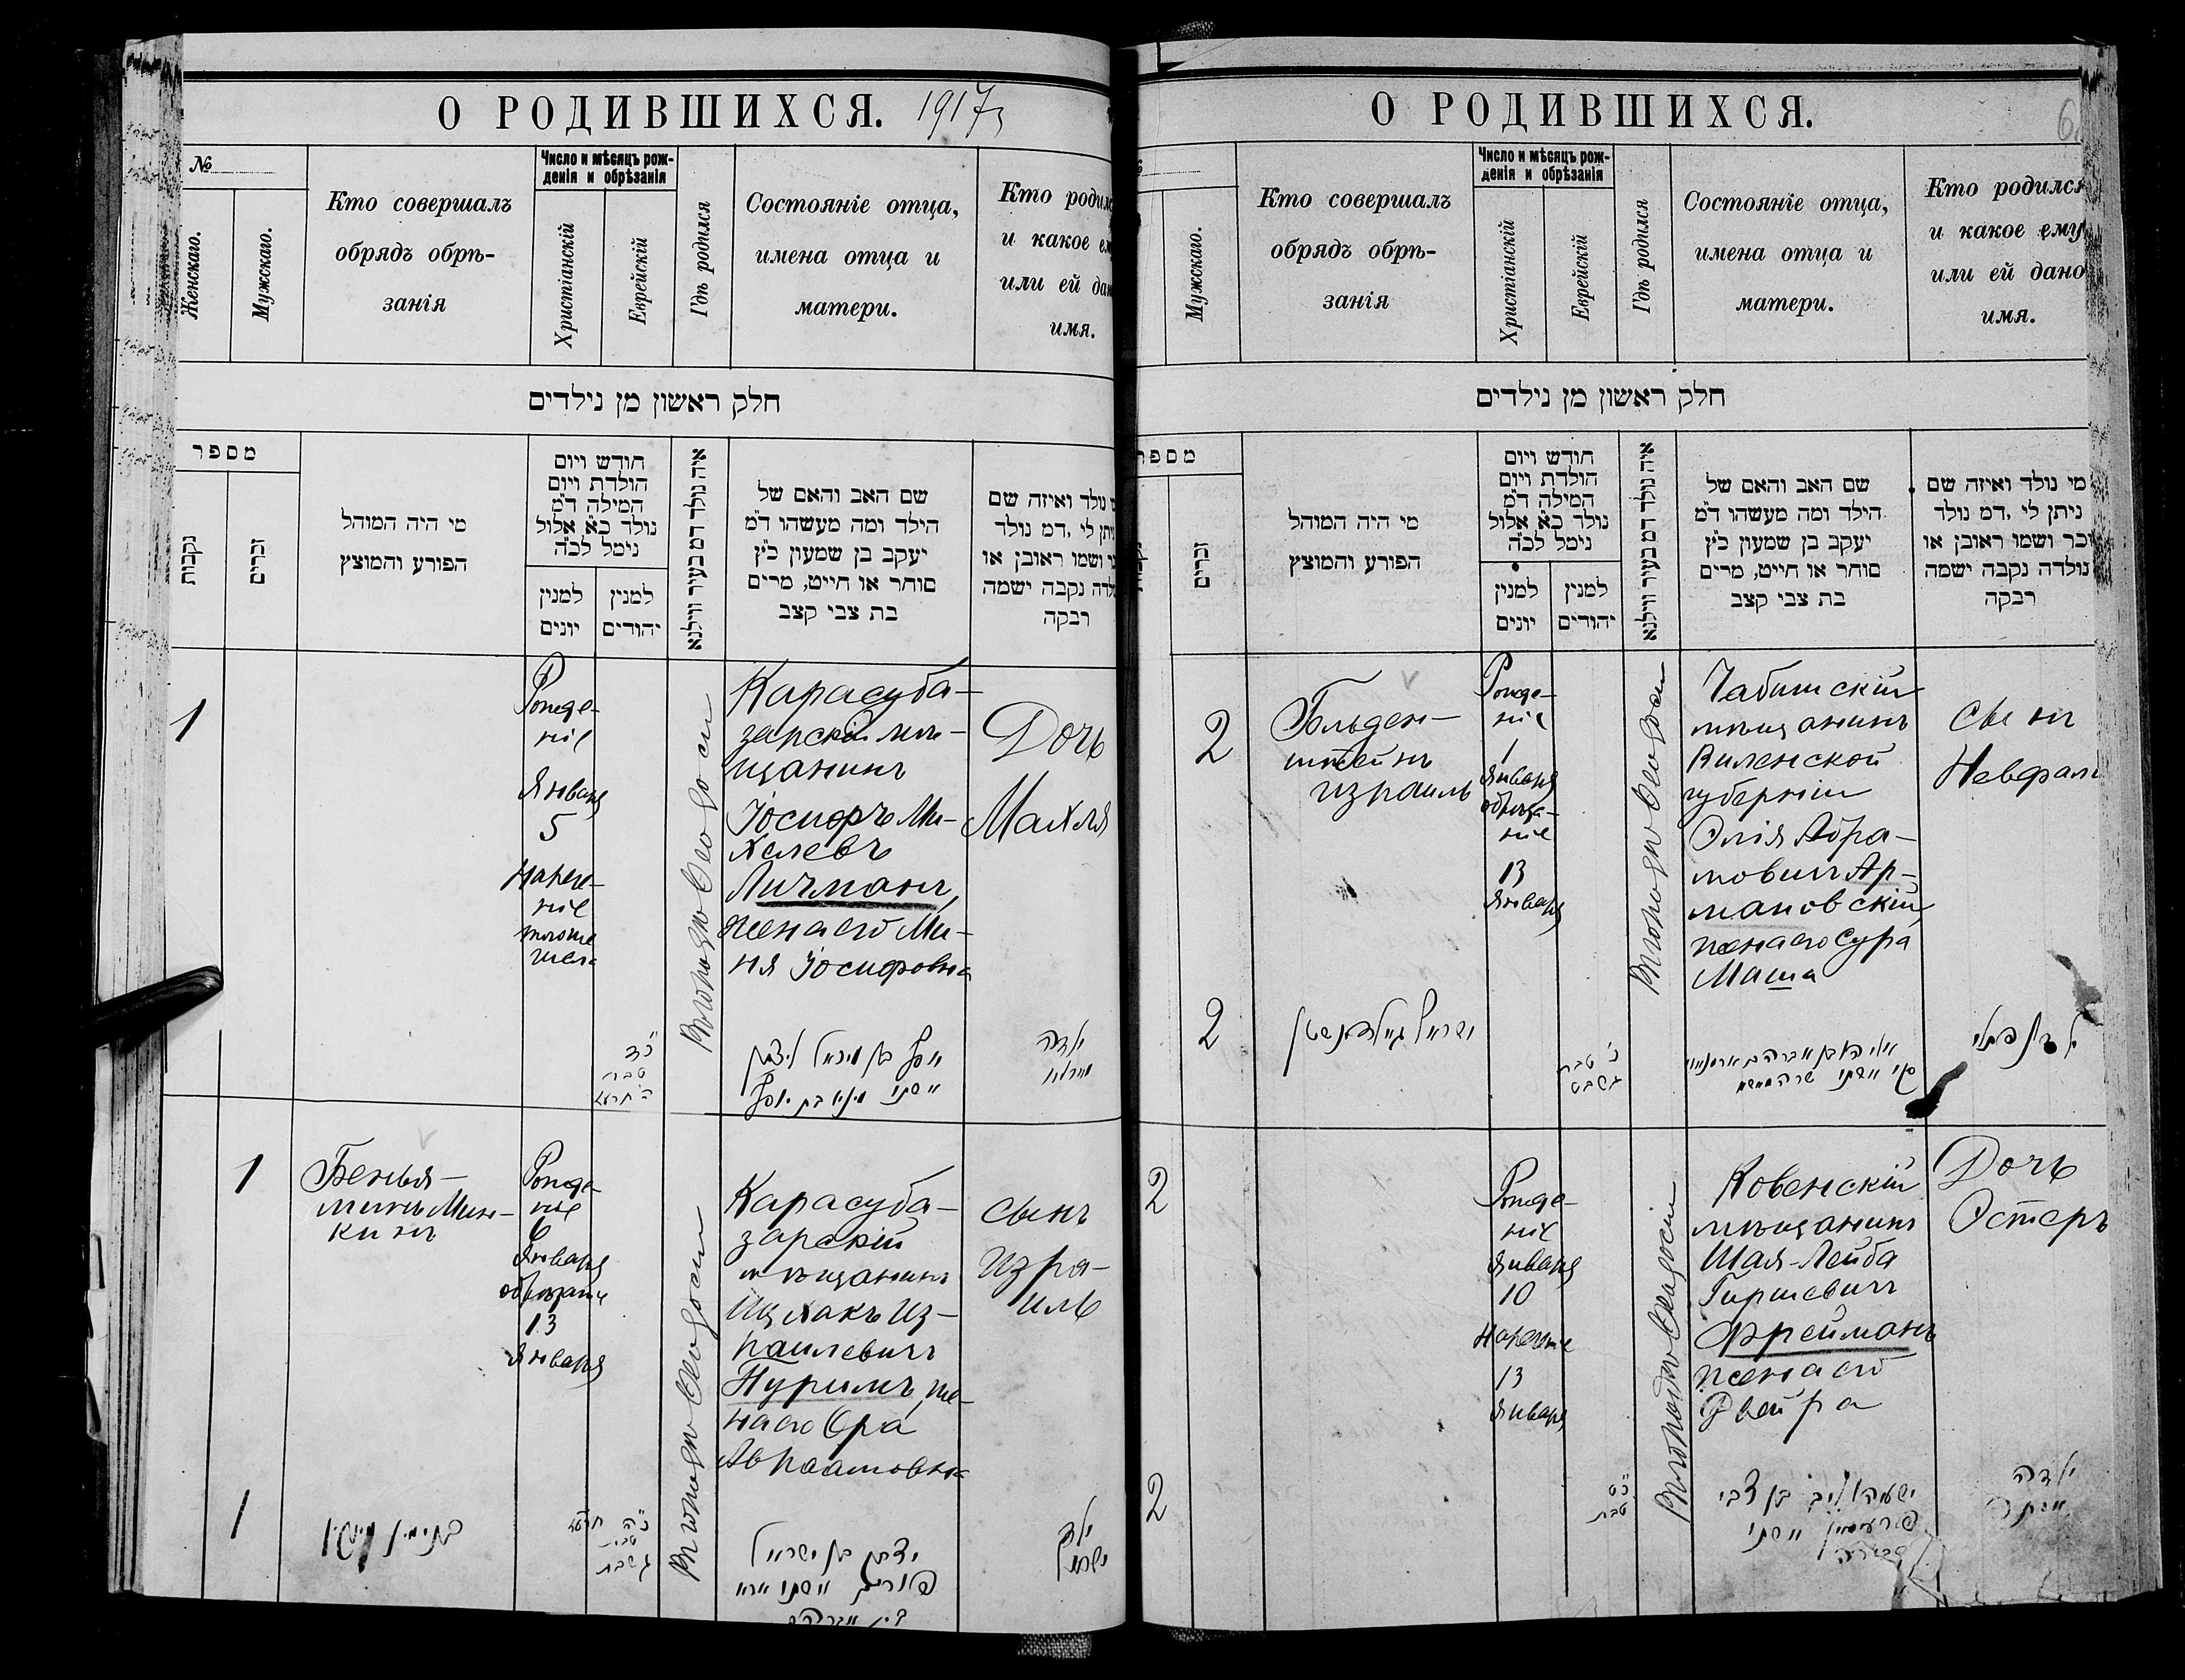 О РОДИВШИХСЯ. 1917
№
Женскаго.
Мужскаго.
Кто совершалъ
обрядъ обрѣ-
занія
Число и мѣсяцъ рож-
денія и обрѣзанія
Христіанскій
Еврейскій
Гдѣ родился
Состояніе отца,
имена отца и
матери.
Кто родил
и какое
или ей дан
имя.
חלק ראשון מן נילדים
מספר
נקבות
זכרים
מי היה המוהל
הפורע והמוצץ
חודש ויום
הולדת ויום
המילה ד״מ
נולד כ״א אלול
נימל לכ״ה
למנין
יונים
למנין
יהודים
איה נולד דמ בעיר ווילנא
שם האב והאם של
הילד ומה מעשהו ד״מ
יעקב בן שמעון כ״ץ
סוחר או חייט, מרים
בת צבי קצב
נולד ואיזה שם
דמ נולד
ושמו ראובן או
נקבה ישמה
רבקה
1
Рожде-
ніе
Января
5
Нарече-
ніе
тогоже
числа
Въ городѣ Ѳеодосіи
Карасуба-
зарскій мѣ-
щанинъ
Іосифъ Ми-
халевъ
Личманъ,
жена его Ми-
ня Іосифовна
Дочь
Махля
כ״ד
טבת
יוסף בן מיכאל ליצמן
ואשתו מיניא בת יוסף
ילדה
1
Бенья-
минъ Мин-
кинъ
Рожде-
ніе
6
Января
обрѣзаніе
13
Января
Въ городѣ Ѳеодосіи
Карасуба-
зарскій
мѣщанинъ
Ицхакъ Из-
раилевичъ
Пуримъ, же-
на его Сра
Авраамовна
сынъ
Изра-
иль
1
בנימין מינקין
כ״ה
טבת
יצחק בן ישראל
פורים ואשתו
ילד
ישראל
О РОДИВШИХСЯ.
Мужскаго.
Кто совершалъ
обрядъ обрѣ-
занія
Число и мѣсяцъ рож-
денія и обрѣзанія
Христіанскій
Еврейскій
Гдѣ родился
Состояніе отца,
имена отца и
матери.
Кто родился
и какое ему
или ей дано
имя.
חלק ראשון מן נילדים
זכרים
מי היה המוהל
הפורע והמוצץ
חודש ויום
הולדת ויום
המילה ד״מ
נולד כ״א אלול
נימל לכ״ה
למנין
יונים
למנין
יהודים
איה נולד דמ בעיר ווילנא
שם האב והאם של
הילד ומה מעשהו ד״מ
יעקב בן שמעון כ״ץ
סוחר או חייט, מרים
בת צבי קצב
מי נולד ואיזה שם
ניתן לי, דמ נולד
זכר ושמו ראובן או
נולדה נקבה ישמה
רבקה
2
Гольден-
штейнъ
Израиль
Рожде-
ніе
1
Января
обрѣза-
ніе
13
Января
Въ городѣ Ѳеодосіи
мѣщанинъ
Виленской
губерніи
Элія Абра-
мовичъ Ар-
мановскій
жена его Сура
Маша
сынъ
2
ישראל גאלדנשטיין
טבת
2
Рожде-
ніе
Января
10
Нареченіе
13
Января
Въ городѣ Ѳеодосіи
Ковенскій
мѣщанинъ
Шая-Лейба
Гиршевичъ
Фрейманъ
жена его
Двейра
Дочь
Эстеръ
2
כ״ט
טבת
ישעיהו ליב בן צבי
ואשתו
ילדה